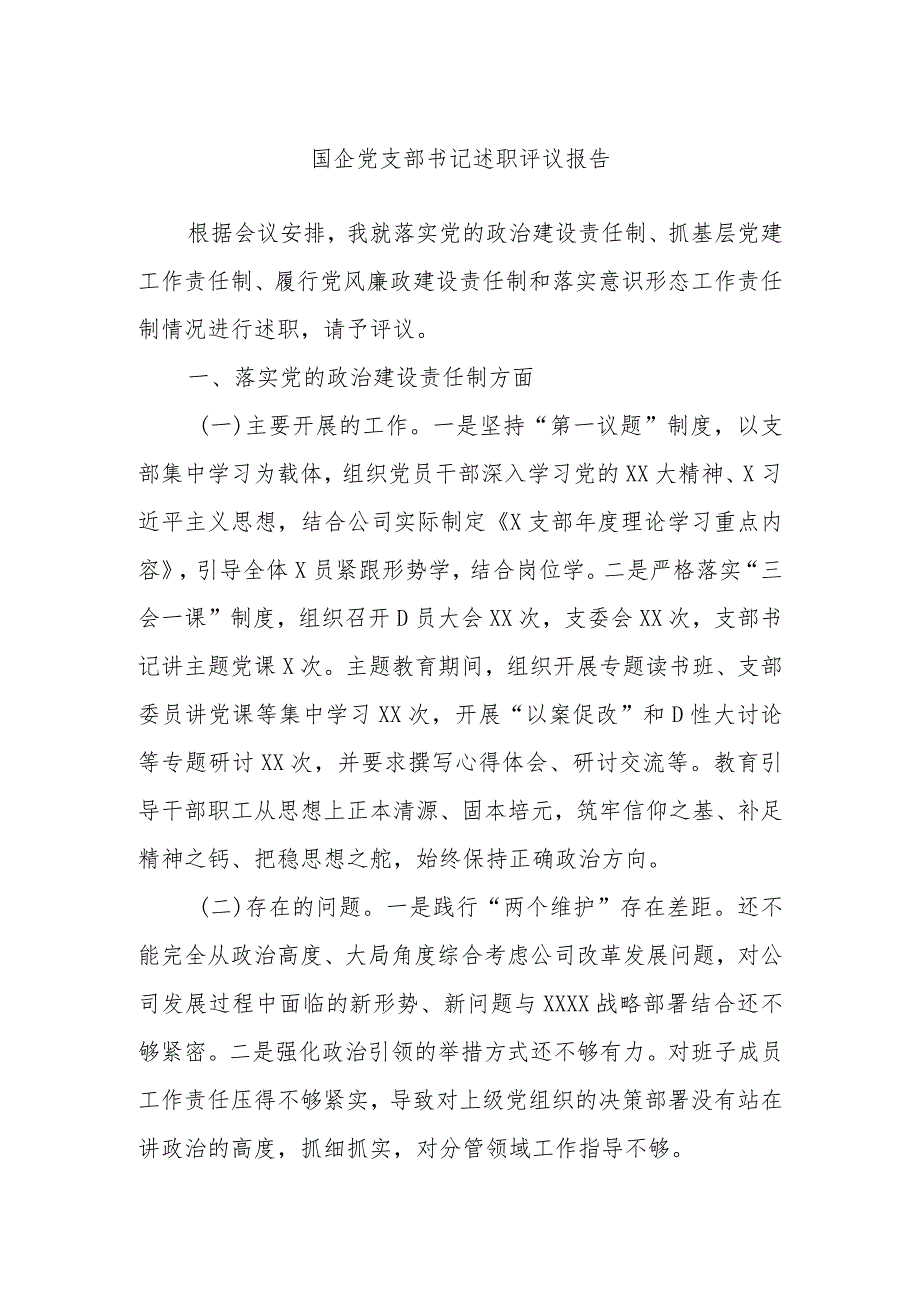 国企党支部书记述职评议报告
根据会议安排，我就落实党的政治建设责任制、抓基层党建
工作责任制、履行党风廉政建设责任制和落实意识形态工作责任
制情况进行述职，请予评议。
一、落实党的政治建设责任制方面
(一)主要开展的工作。一是坚持“第一议题”制度，以支
部集中学习为载体，组织党员干部深入学习党的XX大精神、X习
近平主义思想，结合公司实际制定《X支部年度理论学习重点内
容》，引导全体X员紧跟形势学，结合岗位学。二是严格落实“三
会一课”制度，组织召开D员大会XX次，支委会XX次，支部书
记讲主题党课X次。主题教育期间，组织开展专题读书班、支部
委员讲党课等集中学习XX次，开展“以案促改”和D性大讨论
等专题研讨XX次，并要求撰写心得体会、研讨交流等。教育引
导干部职工从思想上正本清源、固本培元，筑牢信仰之基、补足
精神之钙、把稳思想之舵，始终保持正确政治方向。
(二)存在的问题。一是践行“两个维护”存在差距。还不
能完全从政治高度、大局角度综合考虑公司改革发展问题，对公
司发展过程中面临的新形势、新问题与XXXX战略部署结合还不
够紧密。二是强化政治引领的举措方式还不够有力。对班子成员
工作责任压得不够紧实，导致对上级党组织的决策部署没有站在
讲政治的高度，抓细抓实，对分管领域工作指导不够。